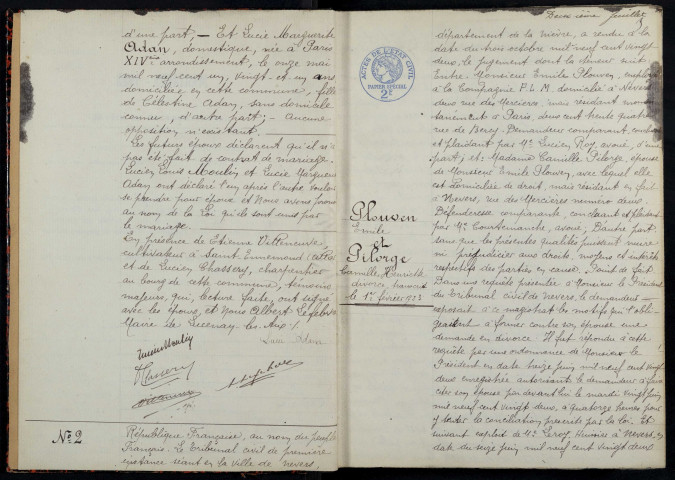 d'une part, — Et Lucie Marguerite
Adan, domestique, née à Paris
XIVème arrondissement, le onze mai
mil neuf cent un, vingt-et-un ans
domiciliée en cette commune, fille
de Célestine Adan, sans domicile
connu, d'autre part; — Aucune
opposition n'existant.
Les futurs époux déclarent qu'il n'a
pas été fait de contrat de mariage.
Lucien Louis Moulin et Lucie Marguerite
Adan ont déclaré l'un après l'autre vouloir
se prendre pour époux et Nous avons prononcé
au nom de la Loi qu'ils sont unis par
le mariage.
En présence de Etienne Villeneuve,
cultivateur à Saint-Ennemond (Allier)
et de Lucien Chassery, charpentier
au bourg de cette commune, témoins
majeurs, qui, lecture faite, ont signé
avec les époux, et Nous Albert Lefebvre
Maire de Lucenay-les-Aix./.
Lucien Moulin
Lucie Adan
Chassery
No 2
République Française, au nom du peuple
Français. Le Tribunal civil de première
instance séant en la ville de Nevers,
Deuxième feuillet
ACTES DE L'ETAT CIVIL
PAPIER SPECIAL
2F
Plouven
Emile
et
Pilorge
Camille Henriette
divorce transcrit
le 1er février 1923
département de la Nièvre, a rendu à la
date du trois octobre mil neuf cent vingt
deux, le jugement dont la teneur suit
Entre Monsieur Emile Plouven, employé
à la Compagnie P.L.M. domicilié à Nevers
deux rue des Mercières mais résidant momen-
tanément à Paris, deux cent trente quatre
rue de Bercy. Demandeur comparant, concluant
et plaidant par Me Lucien Roy, avoué, d'une
part; et: Madame Camille Pilorge, épouse
de Monsieur Emile Plouven, avec lequel elle
est domiciliée de droit, mais résidant en fait
à Nevers, rue des Mercières numéro deux.
Défenderesse comparante, concluant et plaidant
par Me Courtemanche, avoué, D'autre part
sans que les présentes qualités puissent nuire
ni préjudicier aux droits, moyens et intérêts
respectifs des parties en cause. Point de fait
Dans une requête présentée à Monsieur le Président
du Tribunal civil de Nevers, le demandeur
exposait à ce magistrat les motifs qui l'obli-
geaient à former contre son épouse une
demande en divorce. Il fut répondu à cette
requête par une ordonnance de Monsieur le
Président en date treize juin mil neuf cent vingt
deux enregistrée autorisant le demandeur à faire
citer son épouse par devant lui le mardi vingt juin
mil neuf cent vingt deux, à quatorze heures pour
y tenter la conciliation prescrite par la loi. Et
suivant exploit de Me Leroy, Huissier à Nevers, en
date du seize juin mil neuf cent vingt deux